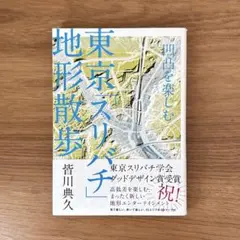 凹凸を楽しむ
東京「スリバチ」
地形散歩
皆川典久
東京スリバチ学会
グッドデザイン賞受賞
祝!
高低差を楽しむ、
まったく新しい
地形エンターテイメント!